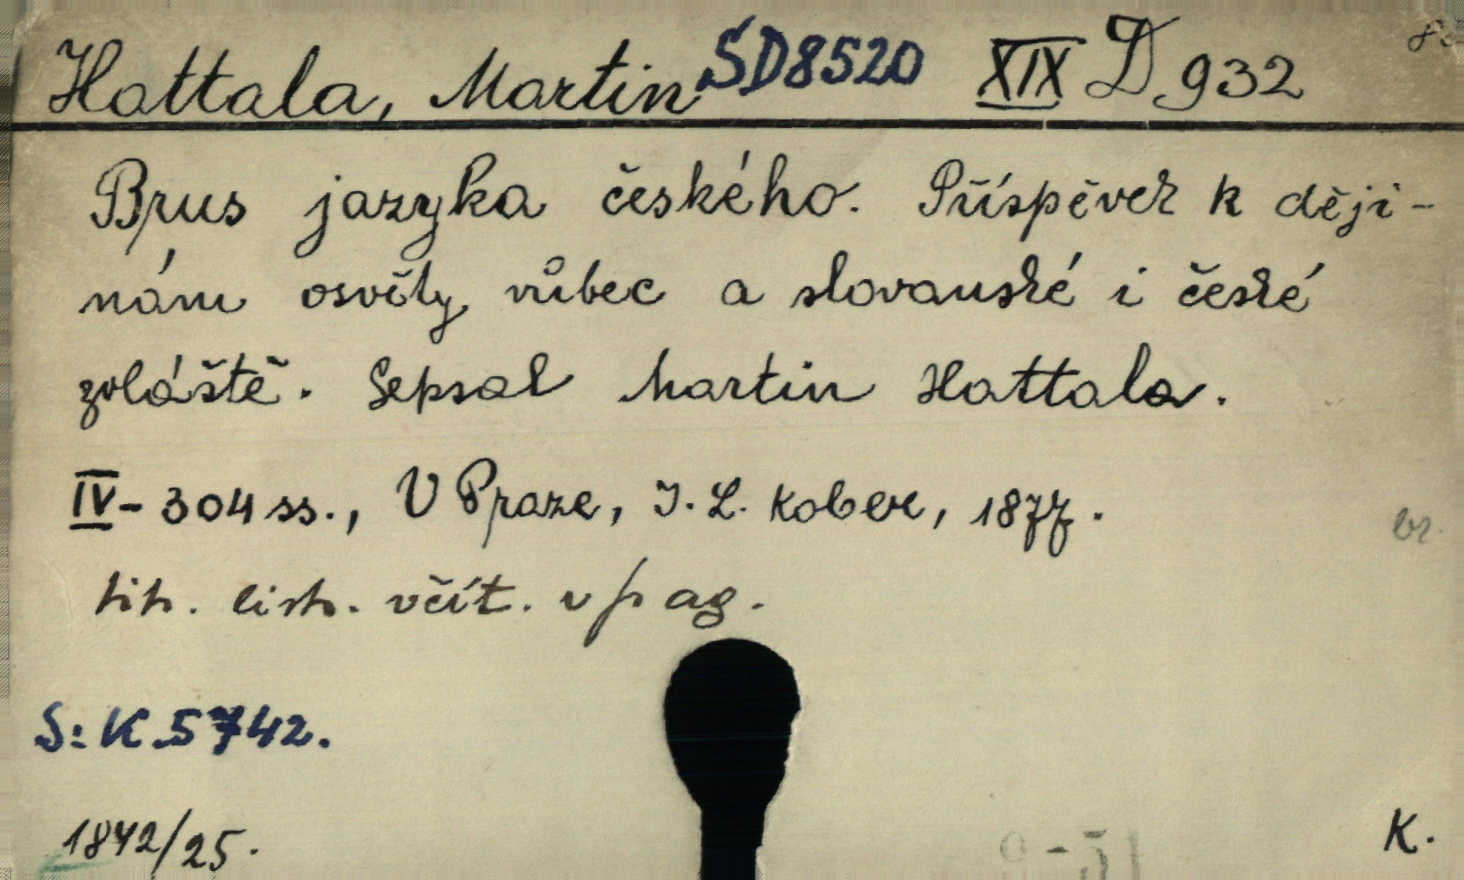 Hattala, Martin SD8520 XIX D 932
Brus jazyka českého. Příspěvek k ději-
nám osvěty vůbec a slovanské i české
zvláště. Sepsal Martin Hattala.
IV-304 ss., V Praze, I. L. Kober, 1877.
tit. list. včít. v pag.
br.
S: K 5742.
1842/25.
K.